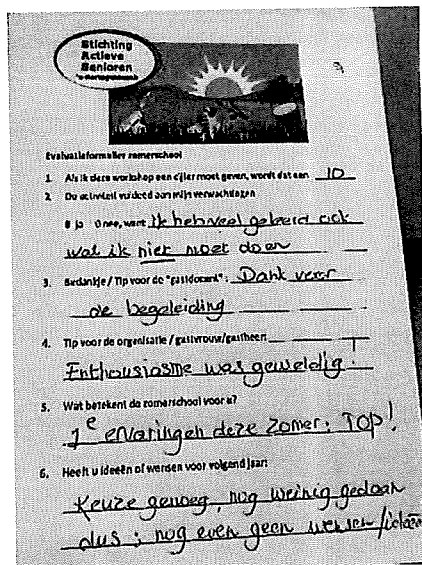 Stichting
Actieve
Senioren
's-Hertogenbosch
Evaluatieformulier zomerschool
1. Als ik deze workshop een cijfer moet geven, wordt dat een 10
2. De activiteit voldeed aan mijn verwachtingen
ja 0 nee, want Ik heb veel geleerd ook
wat ik niet moet doen
3. Bedankje / Tip voor de "gastdocent": Dank voor
de begeleiding
4. Tip voor de organisatie / gastvrouw/gastheer:
Enthousiasme was geweldig!
5. Wat betekent de zomerschool voor u?
1e ervaringen deze zomer: TOP!
6. Heeft u ideeën of wensen voor volgend jaar:
Keuze genoeg, nog weinig gedaan
dus: nog even geen wensen/ideeën